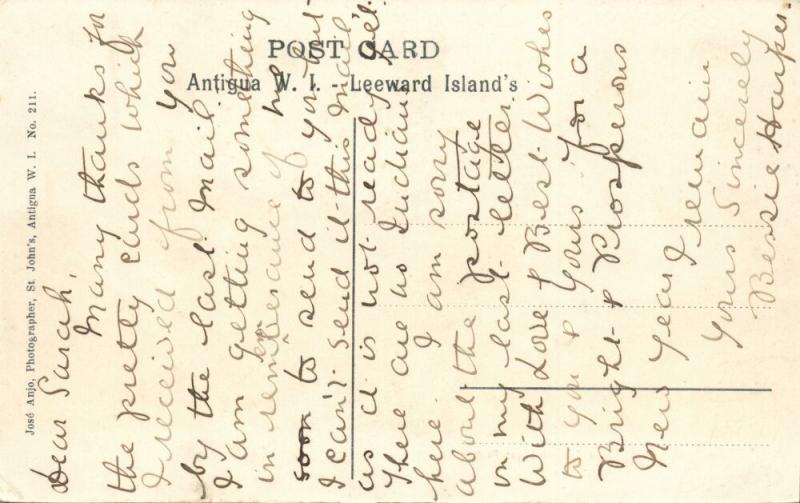 POST CARD
Antigua W. I. - Leeward Island's
José Anjo, Photographer, St. John's, Antigua W. I. No. 211.
Dear Sarah,
Many thanks for
the pretty cards which
I received from you
by the last mail.
I am getting something
in rememberance of me
soon to send to you but
I can't send it this mail
as it is not ready yet.
There are no Indians
here. I am sorry
about the postage
on my last letter.
With Love & Best Wishes
to you & yours for a
Bright & Prosperous
New Year I remain
Yours Sincerely
Bessie Harper.